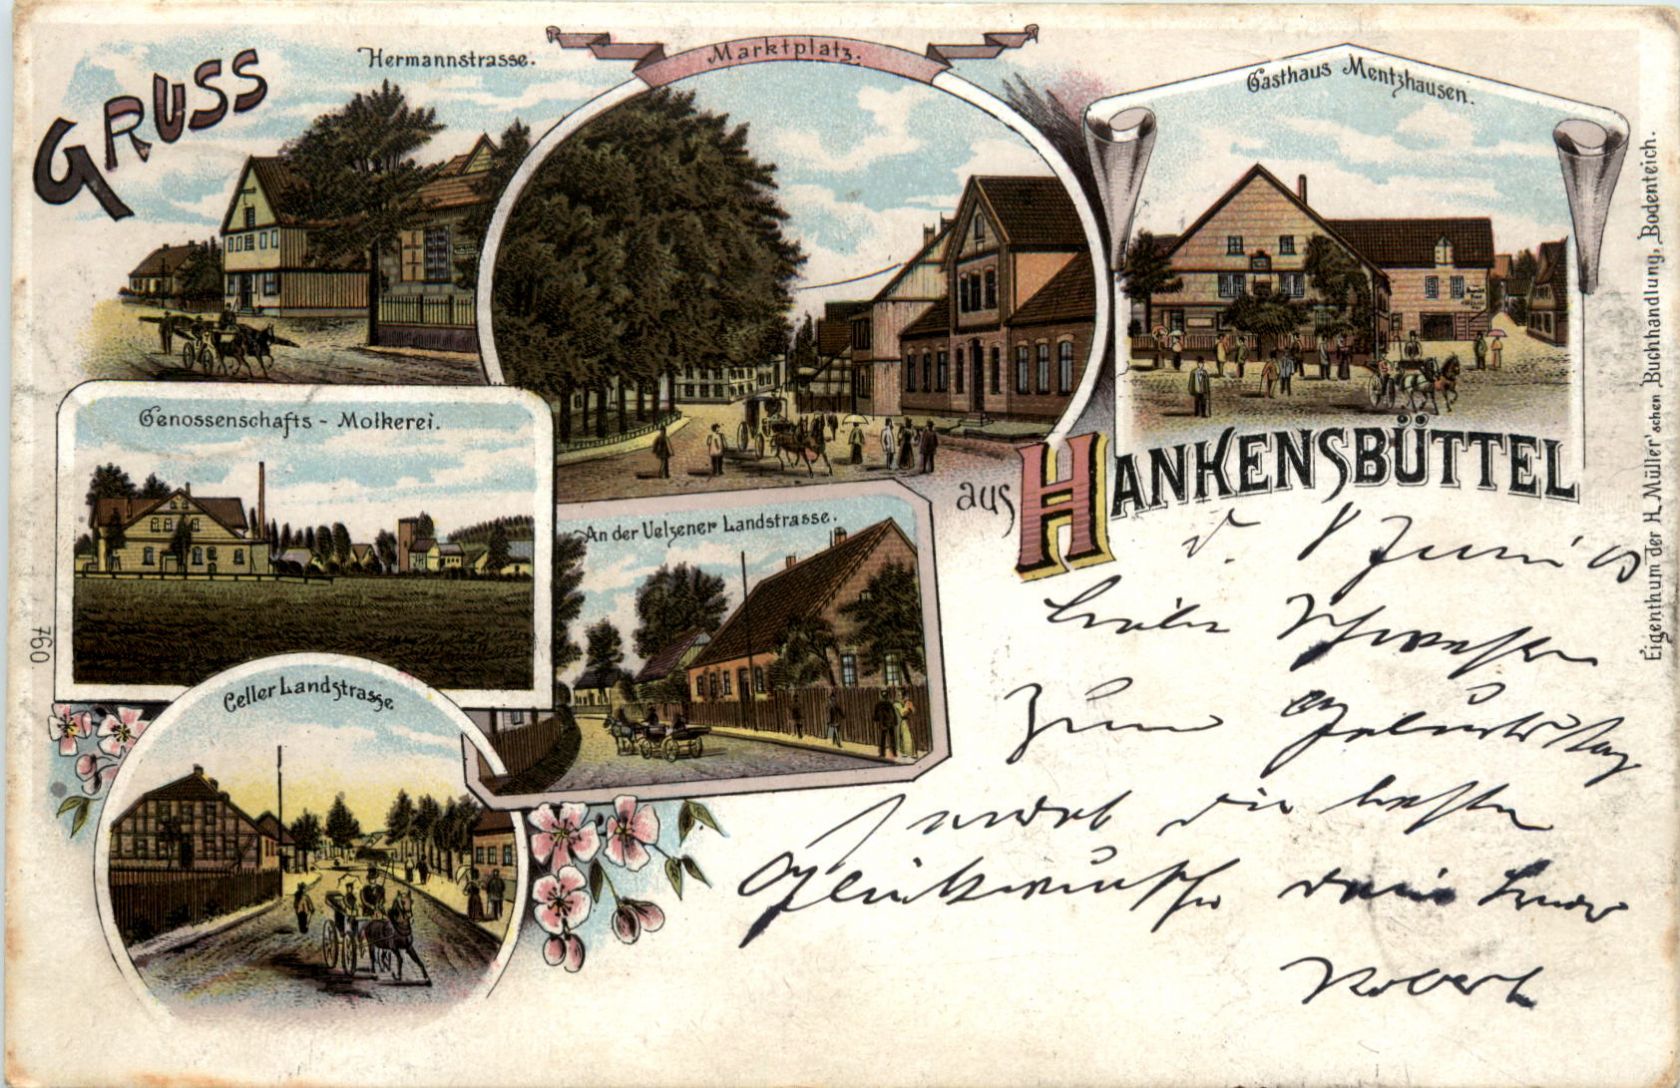 GRUSS
Hermannstrasse.
Marktplatz.
Gasthaus Mentzhausen.
Genossenschafts - Molkerei.
An der Uelzener Landstrasse.
aus HANKENSBÜTTEL
Celler Landstrasse
760.
Eigenthum der H. Müller'schen Buchhandlung, Bodenteich.
d. 8 Juni
Liebe Schwester
Zum Geburtstag
sendet die besten
Glückwünsche dein Bruder
Robert